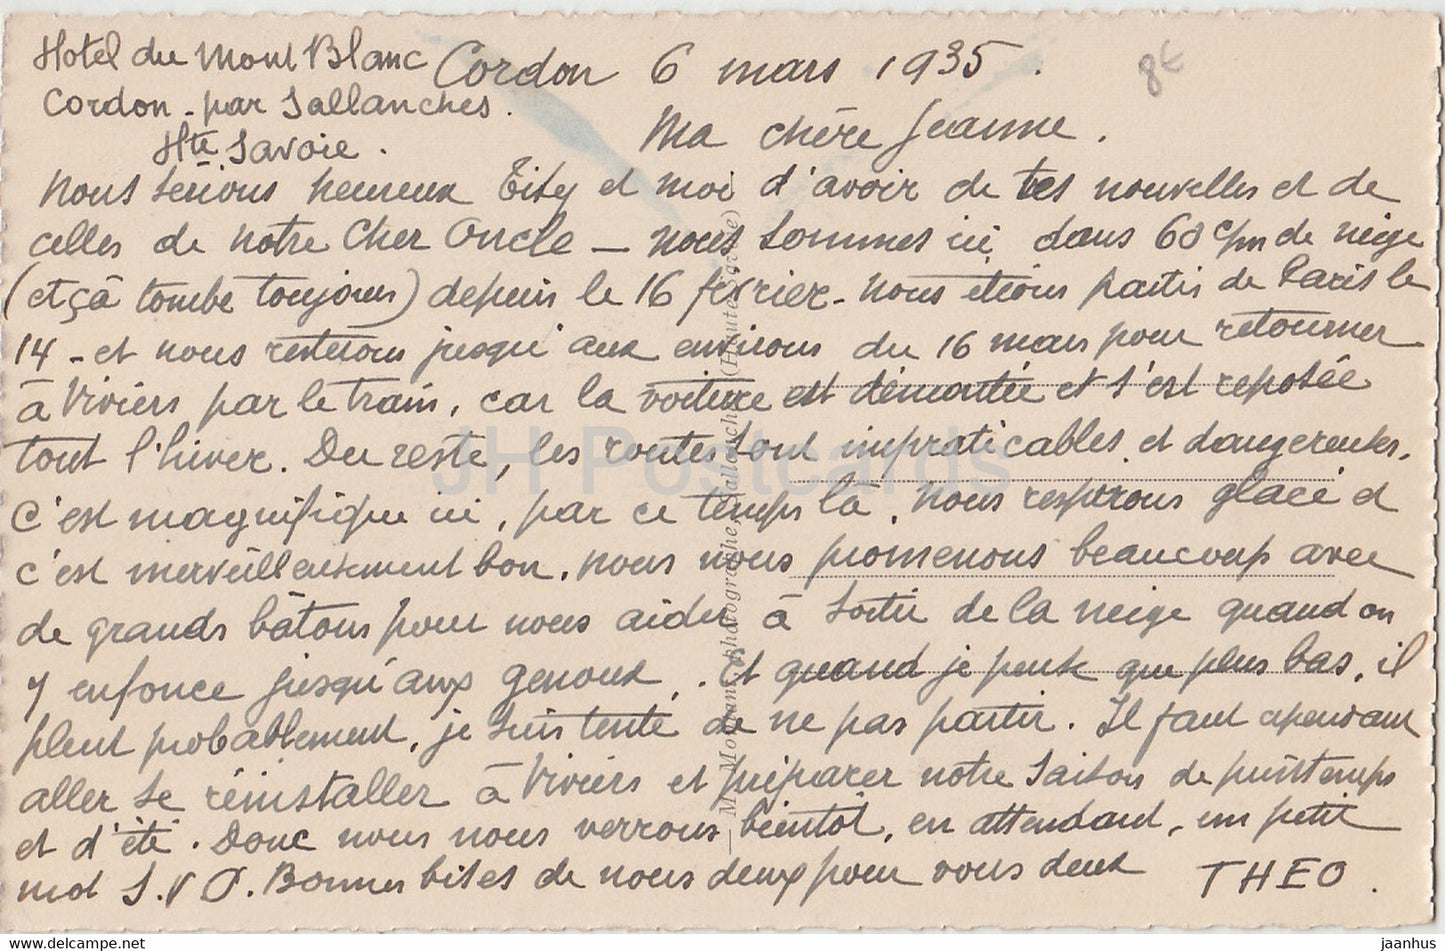 Hotel du Mont Blanc
Cordon - par Sallanches.
Hte Savoie.
Cordon 6 mars 1935.
8€
Ma chère Jeanne.
Nous serions heureux Tity et moi d'avoir de tes nouvelles et de
celles de notre Cher Oncle - nous sommes ici dans 60 c/m de neige
(et çà tombe toujours) depuis le 16 février - nous étions partis de Paris le
14 - et nous resterons jusqu'aux environs du 16 mars pour retourner
à Viviers par le train, car la voiture est démontée et s'est reposée
tout l'hiver. Du reste, les routes sont impraticables et dangereuses.
C'est magnifique ici, par ce temps là, nous respirons glacé et
c'est merveilleusement bon. nous nous promenons beaucoup avec
de grands bâtons pour nous aider à sortir de la neige quand on
y enfonce jusqu'aux genoux. Et quand je pense que plus bas, il
pleut probablement, je suis tenté de ne pas partir. Il faut cependant
aller se réinstaller à Viviers et préparer notre saison de printemps
et d'été. Donc nous nous verrons bientôt, en attendant, un petit
mot S.V.P. Bonnes bises de nous deux pour vous deux THEO.
JH Postcards
www.jhpostcards.com
jaanhus